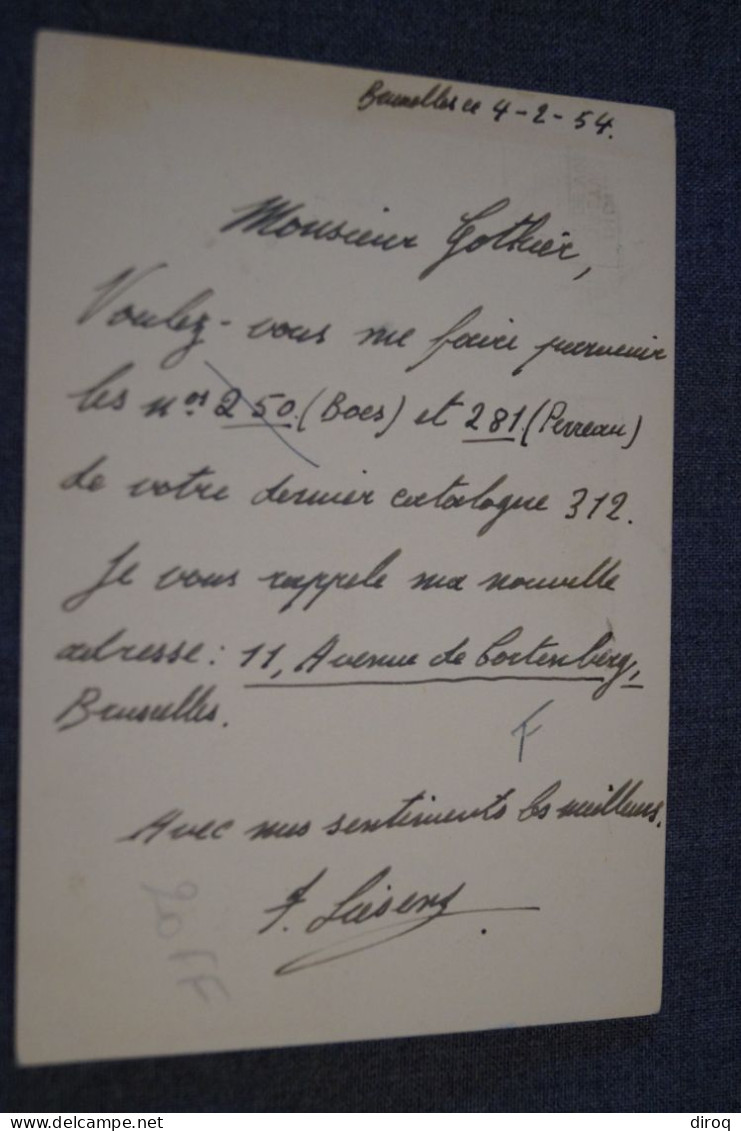 Bruxelles ce 4-2-54.
Monsieur Gothier,
Voulez-vous me faire parvenir
les nos 250. (Boes) et 281. (Perreau)
de votre dernier catalogue 312.
Je vous rappele ma nouvelle
adresse: 11, Avenue de Cortenberg,
Bruxelles.
F
Avec mes sentiments les meilleurs.
20 FF
delcampe.net
diroq